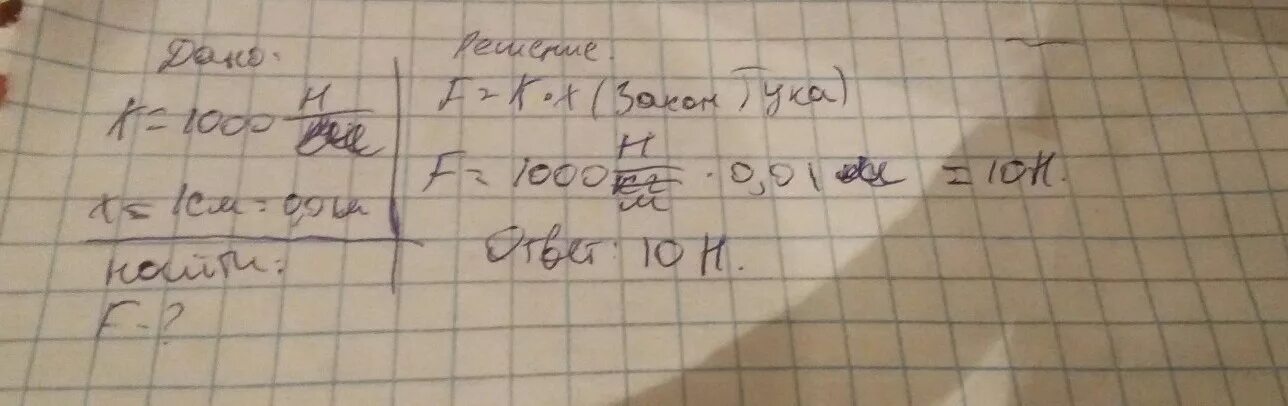 Дано:
K = 1000 Н/м
x = 1см = 0,01м
Найти:
F - ?
Решение
F = K · x (Закон Гука)
F = 1000 Н/м · 0,01 м = 10 Н.
Ответ: 10 Н.